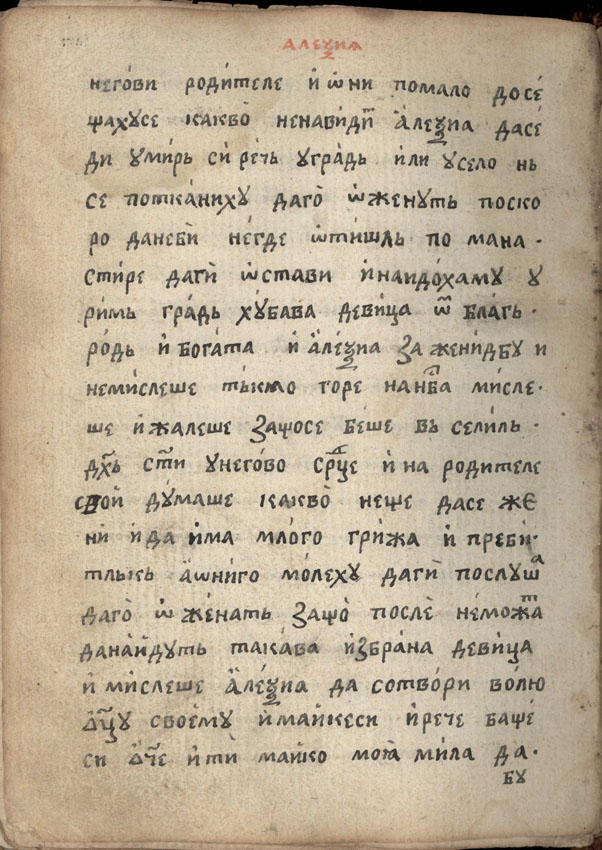 АЛЕѮИѦ
негѡ́ви роди́теле и҆ ѡ҆ни помало досе́
щахусе каквѐ ненави́ди а҆ле́ѯиа дасе
ди умирь си́ речь уградь или усело нь
се потка́ниху даго̀ ѡ҆женуть поско
ро данебѝ не́где ѡ҆ти́шль по мана ·
сти́ре дагѝ ѡ҆стави и҆наидо́хаму у
римь гра́дь ху́бава деви́ца ѿ бла́гь ·
ро́дь и҆ бога́та и҆ а҆ле́ѯиа за жени́дбу и
немислеше ты́кмо горе нан҃ба мисле ·
ше и҆ жалеше защосе беше вь сели́ль ·
дх҃ь ст҃и унегово ср҃це и҆ на родителе
свои ду́маше каквѐ неще дасе же
ни и҆ да и҆ма мло́го гри́жа и҆ преби ·
тлькь а҆ѡ҆ни́го мо́леху дагѝ послуша
даго̀ ѡ҆ же́нать защо̀ послѐ немо́жат
дана́йдуть така́ва и҆збрана деви́ца
и҆ ми́слеше а҆ле́ѯиа да сотво́ри во́лю
ѡ҃цу свое́му и҆ майкеси и҆ рече баще́
си ѡ҃че и҆ ти́ майко моꙗ ми́ла да ·
бу